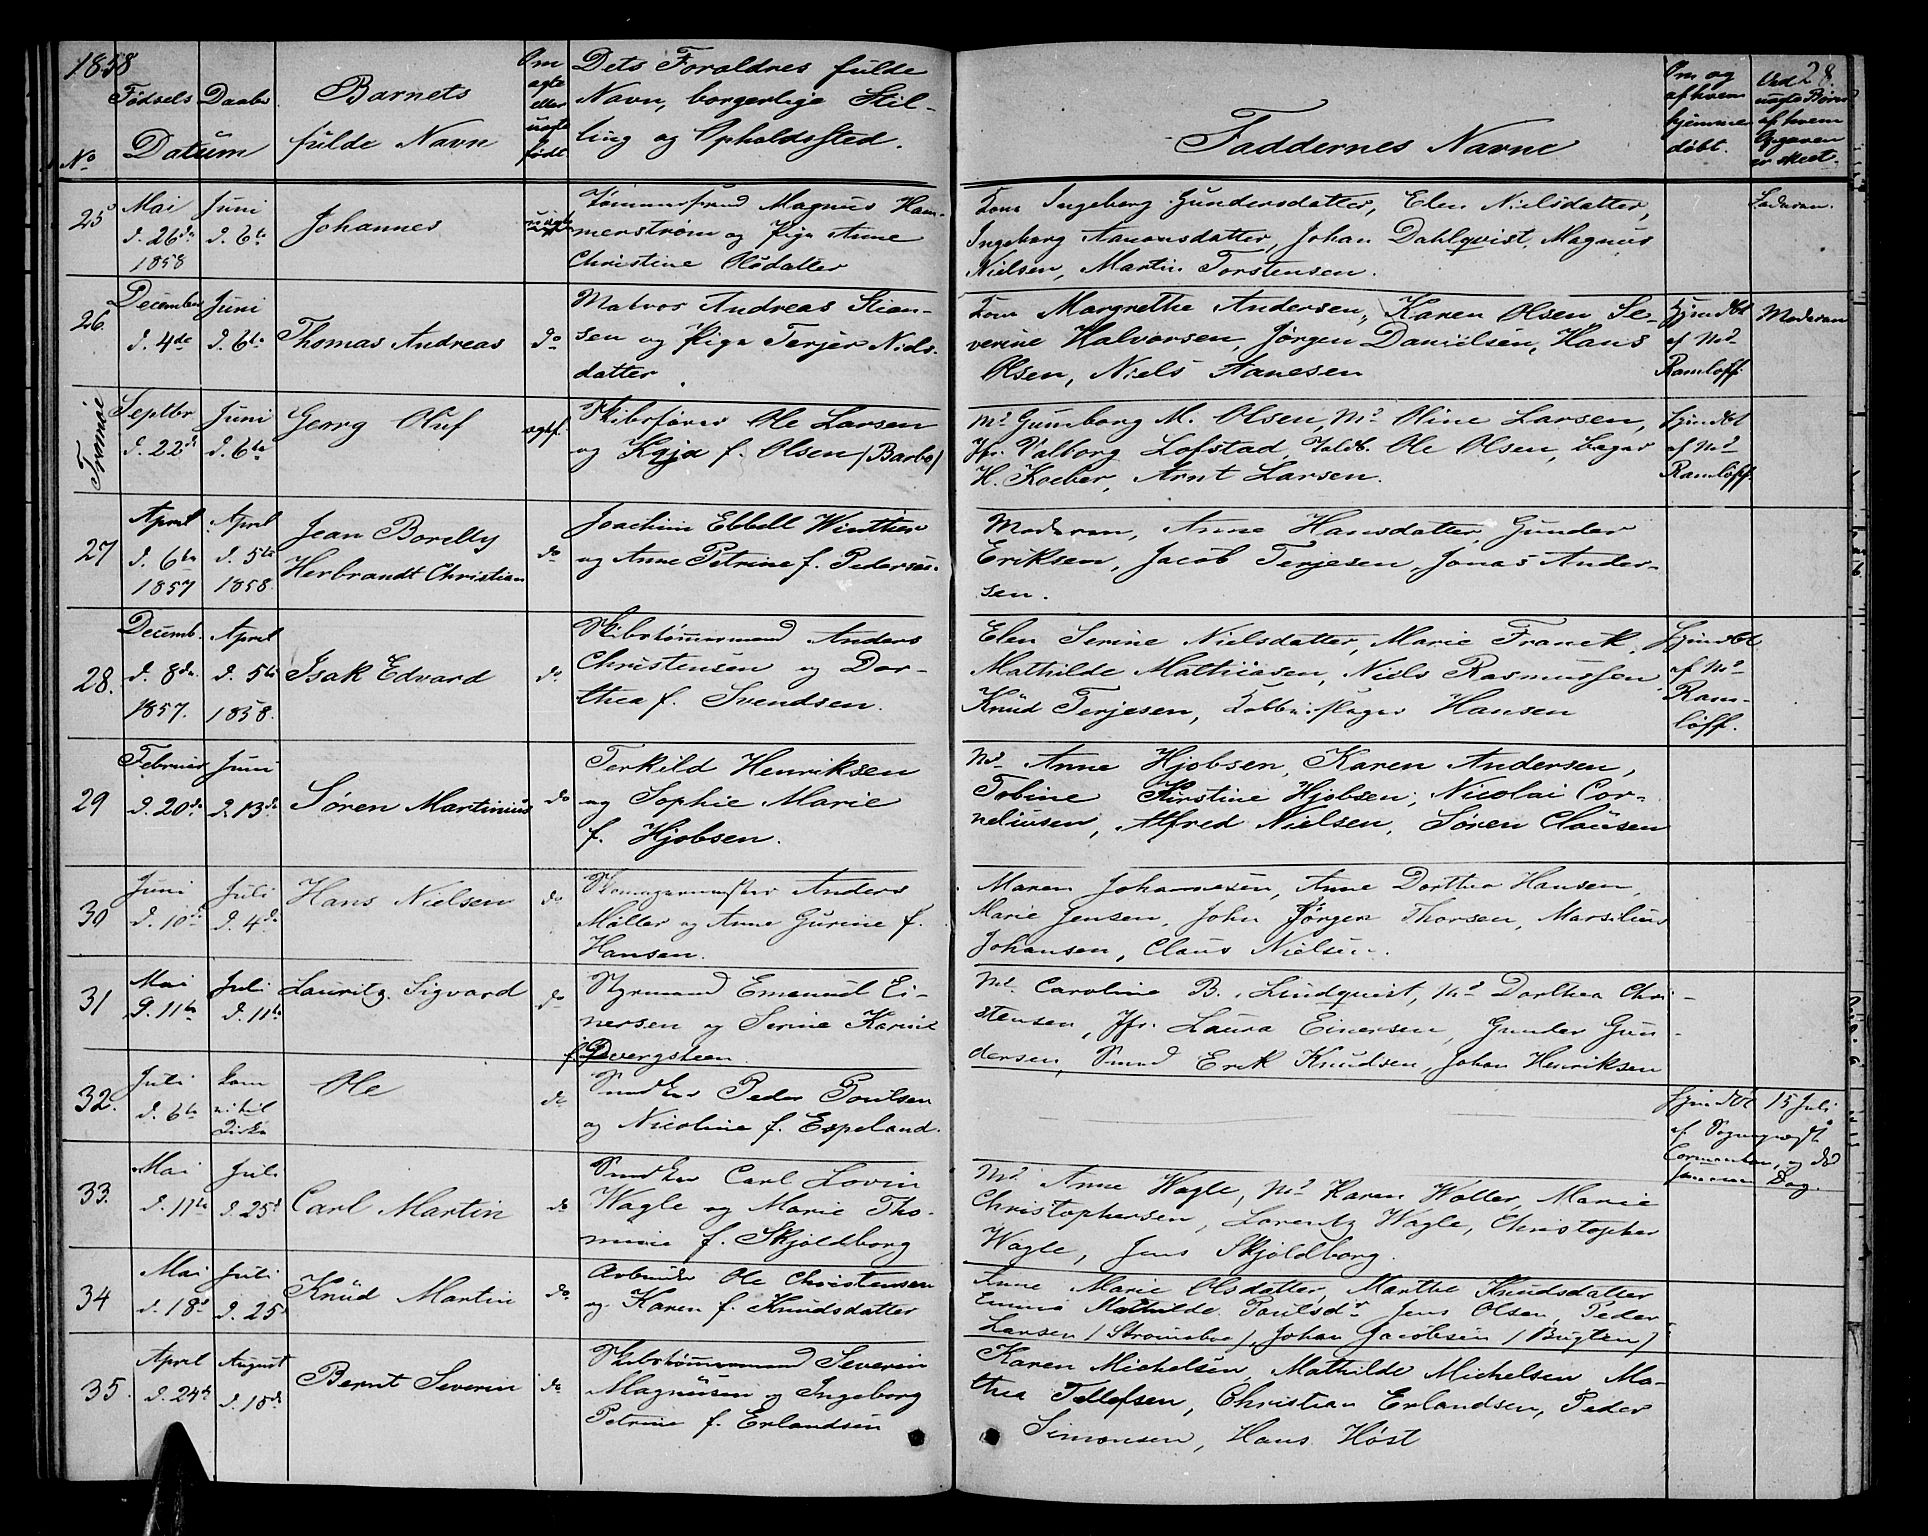 1858
28.
No
Fødsels Daabs
Datum
Barnets
fulde Navn
Om
ægte
eller
uægte
født.
Dets Forældres fulde
Navn, borgerlige Stil-
ling og Opholdssted.
Faddernes Navne
Om og
af hvem
hjemme
døbt.
Ved
uægte Børn
af hvem
Opgaven
er skeet.
25
Mai
d. 26de
1858
Juni
d. 6te
Johannes
uægte
Tømmermand Magnus Ham-
merstrøm og Pige Anne
Christine Olsdatter
Kone Ingeborg Gundersdatter, Elen Nielsdatter,
Ingeborg Aanonsdatter, Johan Dahlqvist, Magnus
Nielsen, Martin Torstensen.
Faderen.
26.
December
d. 4de
Juni
d. 6te
Thomas Andreas
do
Matros Andreas Stian-
sen og Pige Terjer Niels-
datter.
Kone Margrethe Andersen, Karen Olsen Se-
verine Halvorsen, Jørgen Daniilsen, Hans
Olsen, Niels Aanesen
Hjemdbt
af Md
Ramløff
Moderen
Septbr
d. 22d
Juni
d. 6te
Gerrg Oluf
ægte f.
Skibsfører Ole Larsen
og Kaja f. Olsen (Barbo)
Md Gunnborg M. Olsen, Md Oline Larsen,
Jfr. Valborg Lofstad, Ole Olsen, Bager
H. Koeber, Arnt Larsen.
Hjemdbt
af Md
Ramløff.
27
April
d. 6te
1857
April
d. 5te
1858.
Jean Borelly
Herbrandt Christian
do
Joachim Ebbell Winther
og Anne Petrine f. Pedersen.
Moderen, Anne Hansdatter, Gunder
Eriksen, Jacob Terjesen, Jonas Ander-
sen.
28.
Decemb.
d. 8de.
1857.
April
d. 5te
1858.
Isak Edvard
do
Skibstømmermand Anders
Christensen og Dor-
thea f. Svendsen.
Elen Serine Nielsdatter, Marie Franck,
Mathilde Mathiasen, Niels Rasmussen
Knud Terjesen, Kobberslager Hansen
Hjemdbt
af Md
Ram-
løff.
29
Februar
d. 20de
Juni
d. 13de
Søren Martinius
do
Terkild Henriksen
og Sophie Marie
f. Hjobsen.
Md Anne Hjobsen, Karen Andersen,
Tobine Kirstine Hjobsen, Nicolai Cor-
neliusen, Alfred Nielsen, Søren Clausen
30
Juni
d. 10de
Juli
d. 4de
Hans Nielsen
do
Skomagermester Anders
Møller og Anne Gurine f.
Hansen.
Maren Johannesen, Anne Dorthea Hansen,
Marie Jensen, John Jørgen Thorsen, Marsilius
Johansen, Claus Nielsen.
31
Mai
d. 11te
Juli
d. 11te
Lauritz Sigvard
do
Styrmand Emanuel Ei-
nersen og Serine Karine
f. Dvergsteen.
Md. Caroline B. Lindquist, Md Dorthea Chri-
stensen, Jfr. Laura Einersen, Gunder Gun-
dersen, Smed Erik Knudsen, Johan Henriksen
32.
Juli
d. 6te
kom
ei til
Kirke
Ole
do
Snedker Peder Poulsen
og Nicoline f. Espeland.
Hjemdbt 15 Juli
af Sognepræst
Cormontan, og død
samme Dag.
33.
Mai
d. 11te
Juli
d. 25d
Carl Martin
do
Snedker Carl Lovin
Wagle og Marie Tho-
mine f. Skjoldborg
Md Anne Wagle, Md Karen Woller, Marie
Christophersen, Lorentz Wagle, Christopher
Wagle, Jens Skjoldborg.
34
Mai
d. 18d
Juli
d. 25d
Knud Martin
do.
Arbeider Ole Christensen
og Karen f. Knudsdatter
Anne Marie Olsdatter, Marthe Knudsdatter
Emma Mathilde Poulsdr. Jens Olsen, Peder
Larsen (Strømsboe), Johan Jacobsen (Bugten)
35.
April
d. 24de
August
d. 15de
Bernt Severin
do
Skibstømmermand Severin
Magnusen og Ingeborg
Petrine f. Erlandsen
Karen Michelsen, Mathilde Michelsen Ma-
thea Tellefsen, Christian Erlandsen, Peder
Simonsen, Hans Høst